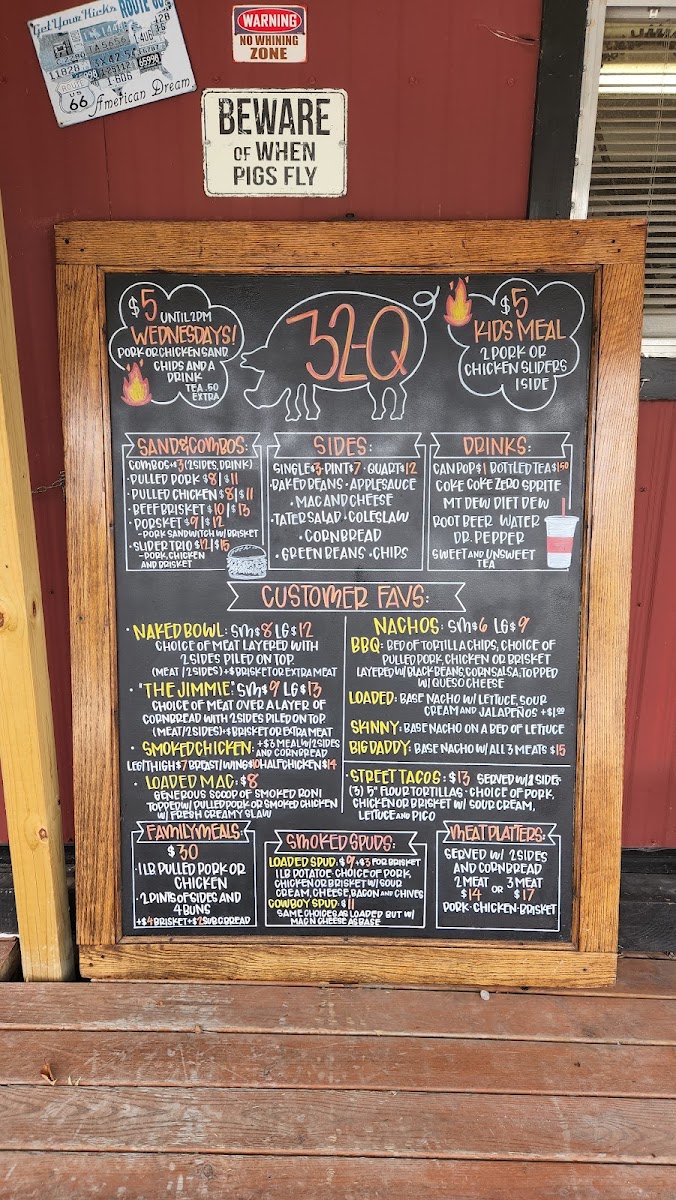 Get Your Kicks ROUTE 66
ROUTE
US
66
American Dream
WARNING
NO WHINING
ZONE
BEWARE
OF WHEN
PIGS FLY
$5 UNTIL 2PM
WEDNESDAYS!
PORK OR CHICKEN SAND
CHIPS AND A
DRINK
TEA .50
EXTRA
32-Q
$5
KIDS MEAL
2 PORK OR
CHICKEN SLIDERS
1 SIDE
SAND & COMBOS:
COMBOS +$3 (2 SIDES, DRINK)
• PULLED PORK $8 | $11
• PULLED CHICKEN $8 | $11
• BEEF BRISKET $10 | $13
• PORSKET $9 | $12
- PORK SANDWITCH W/ BRISKET
• SLIDER TRIO $12 | $15
- PORK, CHICKEN
AND BRISKET
SIDES:
SINGLE $3 • PINT $7 • QUART $12
• BAKED BEANS • APPLESAUCE
• MAC AND CHEESE
• TATER SALAD • COLESLAW
• CORNBREAD
• GREEN BEANS • CHIPS
DRINKS:
CAN POP $1 BOTTLED TEA $1.50
COKE COKE ZERO SPRITE
MT DEW DIET DEW
ROOT BEER WATER
DR. PEPPER
SWEET AND UNSWEET
TEA
CUSTOMER FAVS:
• NAKED BOWL: SM $8 LG $12
CHOICE OF MEAT LAYERED WITH
2 SIDES PILED ON TOP.
(MEAT / 2 SIDES) +$ BRISKET OR EXTRA MEAT
• "THE JIMMIE": SM $9 LG $13
CHOICE OF MEAT OVER A LAYER OF
CORNBREAD WITH 2 SIDES PILED ON TOP.
(MEAT/2 SIDES) +$ BRISKET OR EXTRA MEAT
• SMOKED CHICKEN: +$3 MEAL W/2 SIDES
AND CORNBREAD
LEG/THIGH $7 BREAST/WING $10 HALF CHICKEN $14
• LOADED MAC: $8
GENEROUS SCOOP OF SMOKED RONI
TOPPED W/ PULLED PORK OR SMOKED CHICKEN
W/ FRESH CREAMY SLAW
NACHOS: SM $6 LG $9
BBQ: BED OF TORTILLA CHIPS, CHOICE OF
PULLED PORK, CHICKEN OR BRISKET
LAYERED W/ BLACK BEANS, CORN SALSA, TOPPED
W/ QUESO CHEESE
LOADED: BASE NACHO W/ LETTUCE, SOUR
CREAM AND JALAPEÑOS +$1.00
SKINNY: BASE NACHO ON A BED OF LETTUCE
BIG DADDY: BASE NACHO W/ ALL 3 MEATS $15
• STREET TACOS: $13 SERVED W/ 2 SIDES
(3) 5" FLOUR TORTILLAS • CHOICE OF PORK,
CHICKEN OR BRISKET W/ SOUR CREAM,
LETTUCE AND PICO
FAMILY MEALS:
$30
• 1 LB PULLED PORK OR
CHICKEN
• 2 PINTS OF SIDES AND
4 BUNS
+$4 BRISKET +$2 SUB CBREAD
SMOKED SPUDS:
LOADED SPUD: $9 +$3 FOR BRISKET
1 LB POTATOE • CHOICE OF PORK,
CHICKEN OR BRISKET W/ SOUR
CREAM, CHEESE, BACON AND CHIVES
COWBOY SPUD: $11
SAME CHOICES AS LOADED BUT W/
MAC N CHEESE AS BASE
MEAT PLATTERS:
SERVED W/ 2 SIDES
AND CORNBREAD
2 MEAT OR 3 MEAT
$14 $17
PORK • CHICKEN • BRISKET